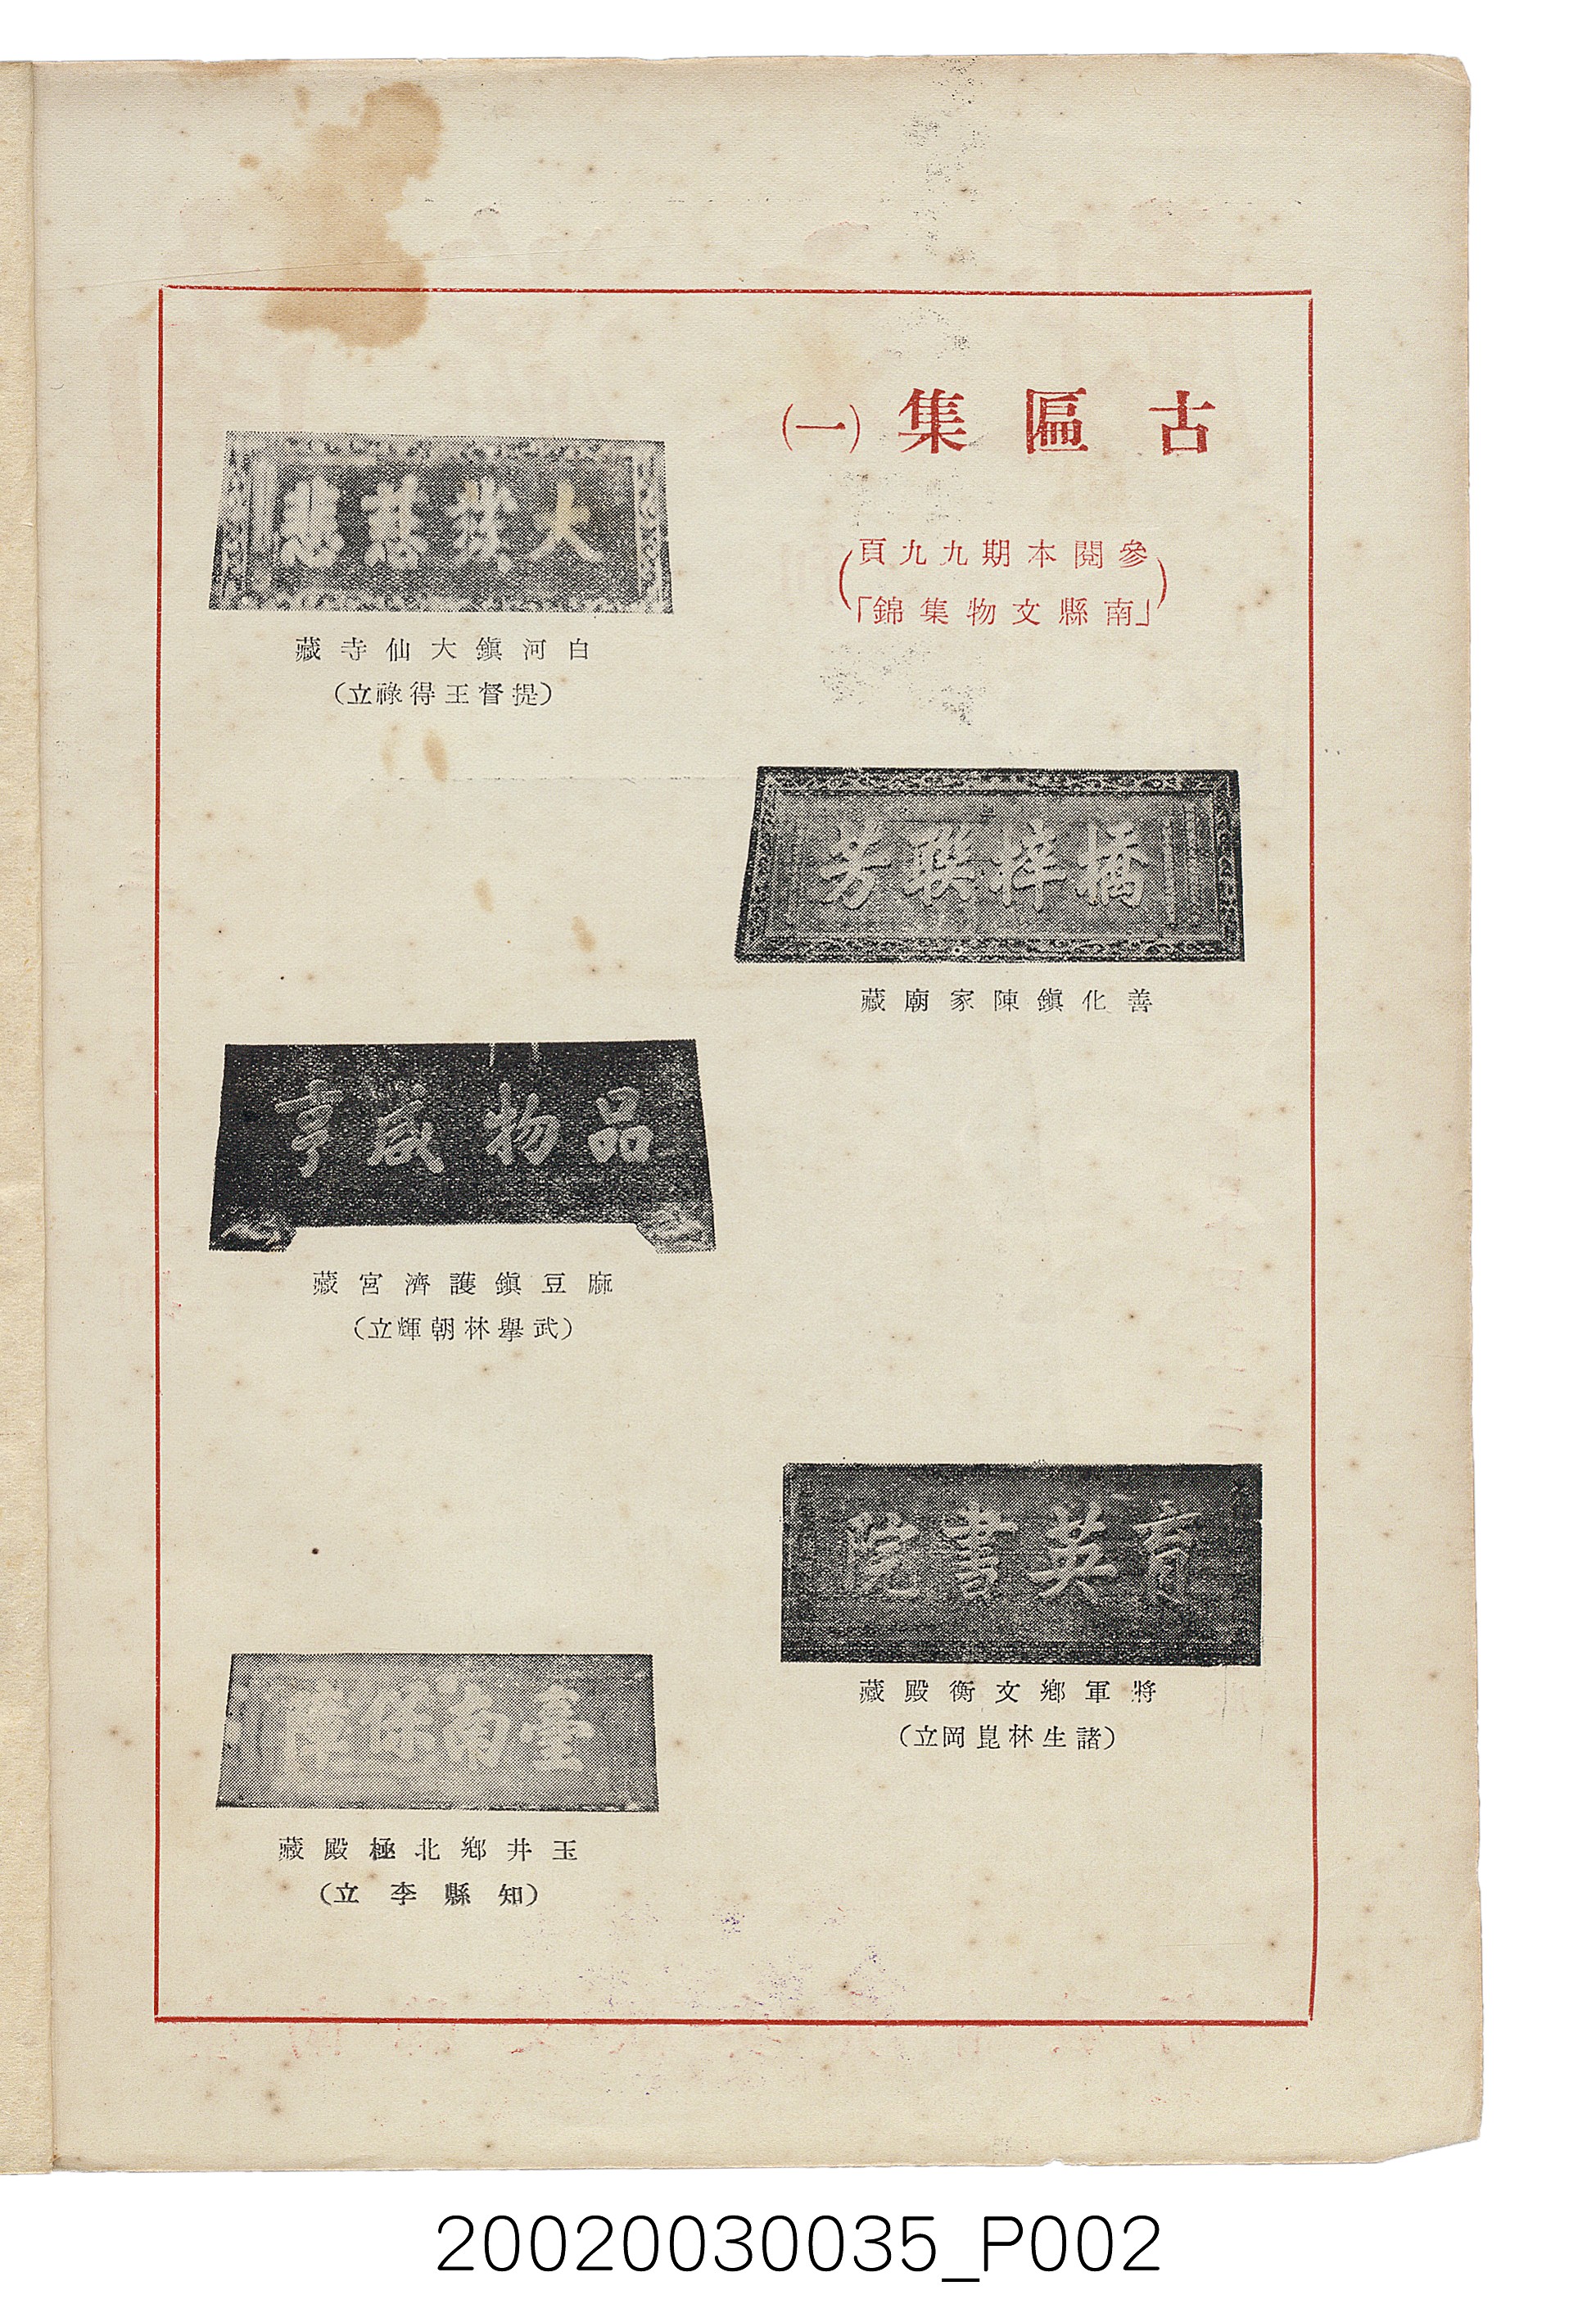 古匾集(一)
(參閱本期九九頁
「南縣文物集錦」)
大發慈悲
白河鎭大仙寺藏
(提督王得祿立)
橋梓聯芳
善化鎭陳家廟藏
品物咸亨
麻豆鎭護濟宮藏
(武擧林朝輝立)
育英書院
將軍鄉文衡殿藏
(諸生林崑岡立)
臺南保障
玉井鄉北極殿藏
(知縣李立)
20020030035_P002